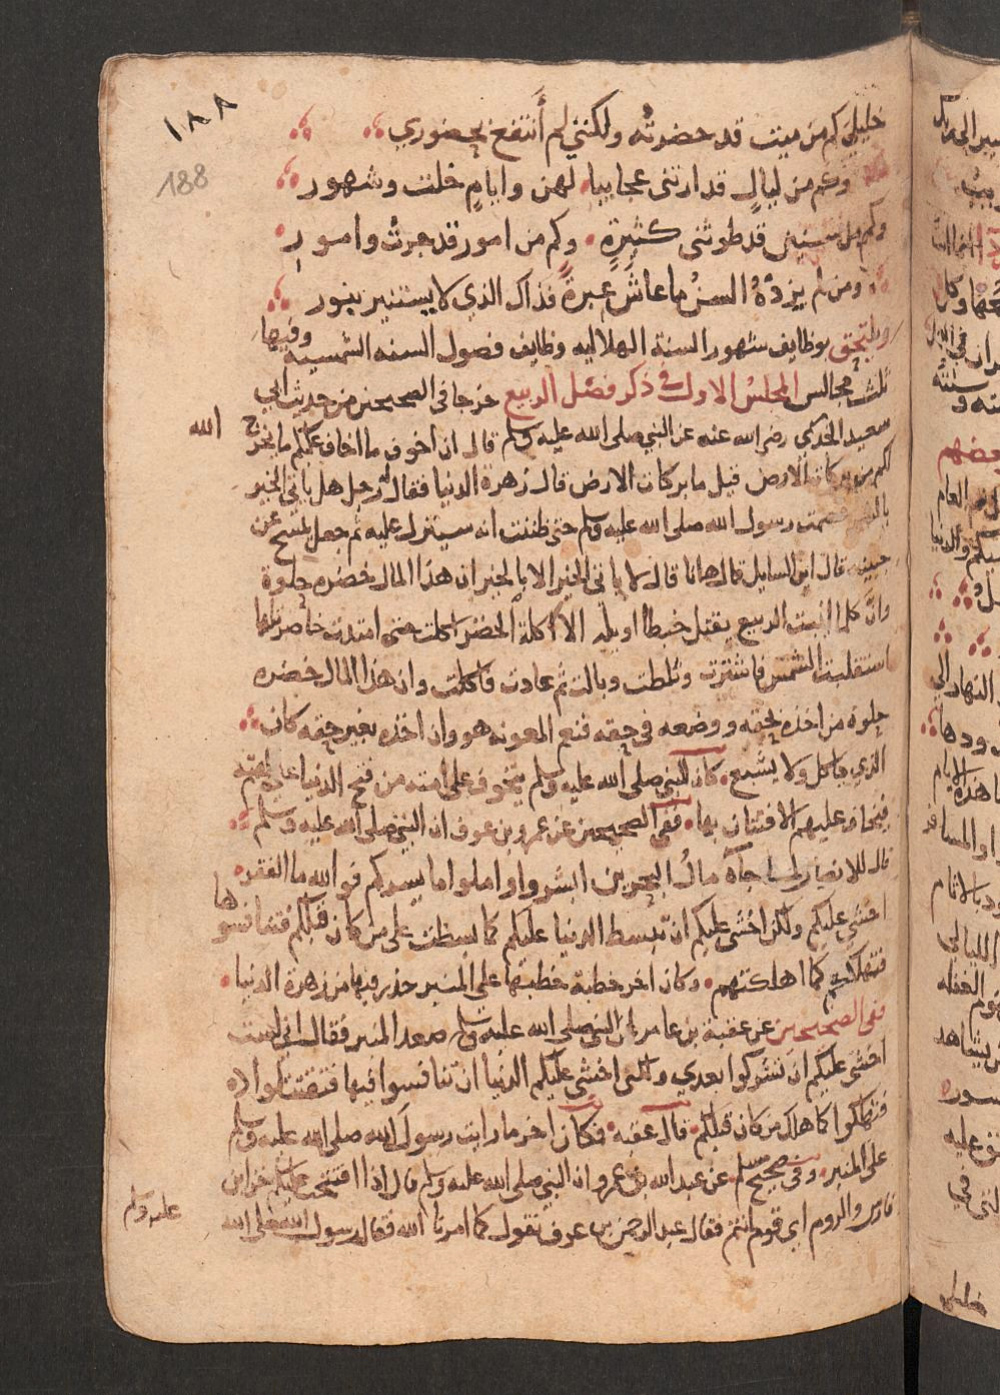 ١٨٨
188
خليلي كم من ميت قد حضرته ولكنني لم أنتفع بحضوري
وكم من ليال قد ارتني عجايبا لهن وايام خلت وشهور
وكم من سنين قد طوتني كثيرة وكم من امور قد جرت وامور
ومن لم يزده السن ما عاش عبرة فذاك الذي لا يستنير بنور
ويلتحق بوظايف شهور السنة الهلاليه وظايف فصول السنه الشمسيه وفيها
ثلث مجالس المجلس الاول في ذكر فصل الربيع خرجا في الصحيحين من حديث ابي
سعيد الخدري رضي الله عنه عن النبي صلى الله عليه وسلم قال ان اخوف ما اخاف عليكم ما يخرج الله
لكم من بركات الارض قيل ما بركات الارض قال زهرة الدنيا فقال له رجل هل ياتي الخير
بالشر فصمت رسول الله صلى الله عليه وسلم حتى ظننت انه سينزل عليه ثم جعل يمسح عن
جبينه قال اين السايل قال ها انا قال لا ياتي الخير الا بالخير ان هذا المال خضره حلوة
وان كل ما انبت الربيع يقتل حبطا او يلم الا اكلة الخضر اكلت حتى امتدت خاصرتاها
استقبلت الشمس فاشترت وثلطت وبالت ثم عادت فاكلت وان هذا المال خضره
حلوه من اخذه بحقه ووضعه في حقه فنعم المعونه هو وان اخذه بغير حقه كان
الذي ياكل ولا يشبع كان النبي صلى الله عليه وسلم يتخوف على امته من فتح الدنيا عليهم
فيخاف عليهم الافتتان بها ففي الصحيحين عن عمرو بن عوف ان النبي صلى الله عليه وسلم
قال للانصار لما جآه مال البحرين ابشروا واملوا ما يسركم فوالله ما الفقر
اخشى عليكم ولكن اخشى عليكم ان تبسط الدنيا عليكم كما بسطت على من كان قبلكم فتنافسوها
فتهلككم كما اهلكتهم وكان اخر خطبة خطبها على المنبر حذر فيها من زهرة الدنيا
ففي الصحيحين عن عقبة بن عامر ان النبي صلى الله عليه وسلم صعد المنبر فقال اني لست
اخشى عليكم ان تشركوا بعدي ولكني اخشى عليكم الدنيا ان تنافسوا فيها فتقتتلوا
فتهلكوا كما هلك من كان قبلكم قال عقبه فكان اخر ما رايت رسول الله صلى الله عليه وسلم
على المنبر وفي صحيح مسلم عن عبد الله بن عمرو ان النبي صلى الله عليه وسلم قال اذا افتتحت عليكم خزاين
فارس والروم اي قوم انتم فقال عبد الرحمن بن عوف نقول كما امرنا الله فقال رسول الله صلى الله
عليه وسلم